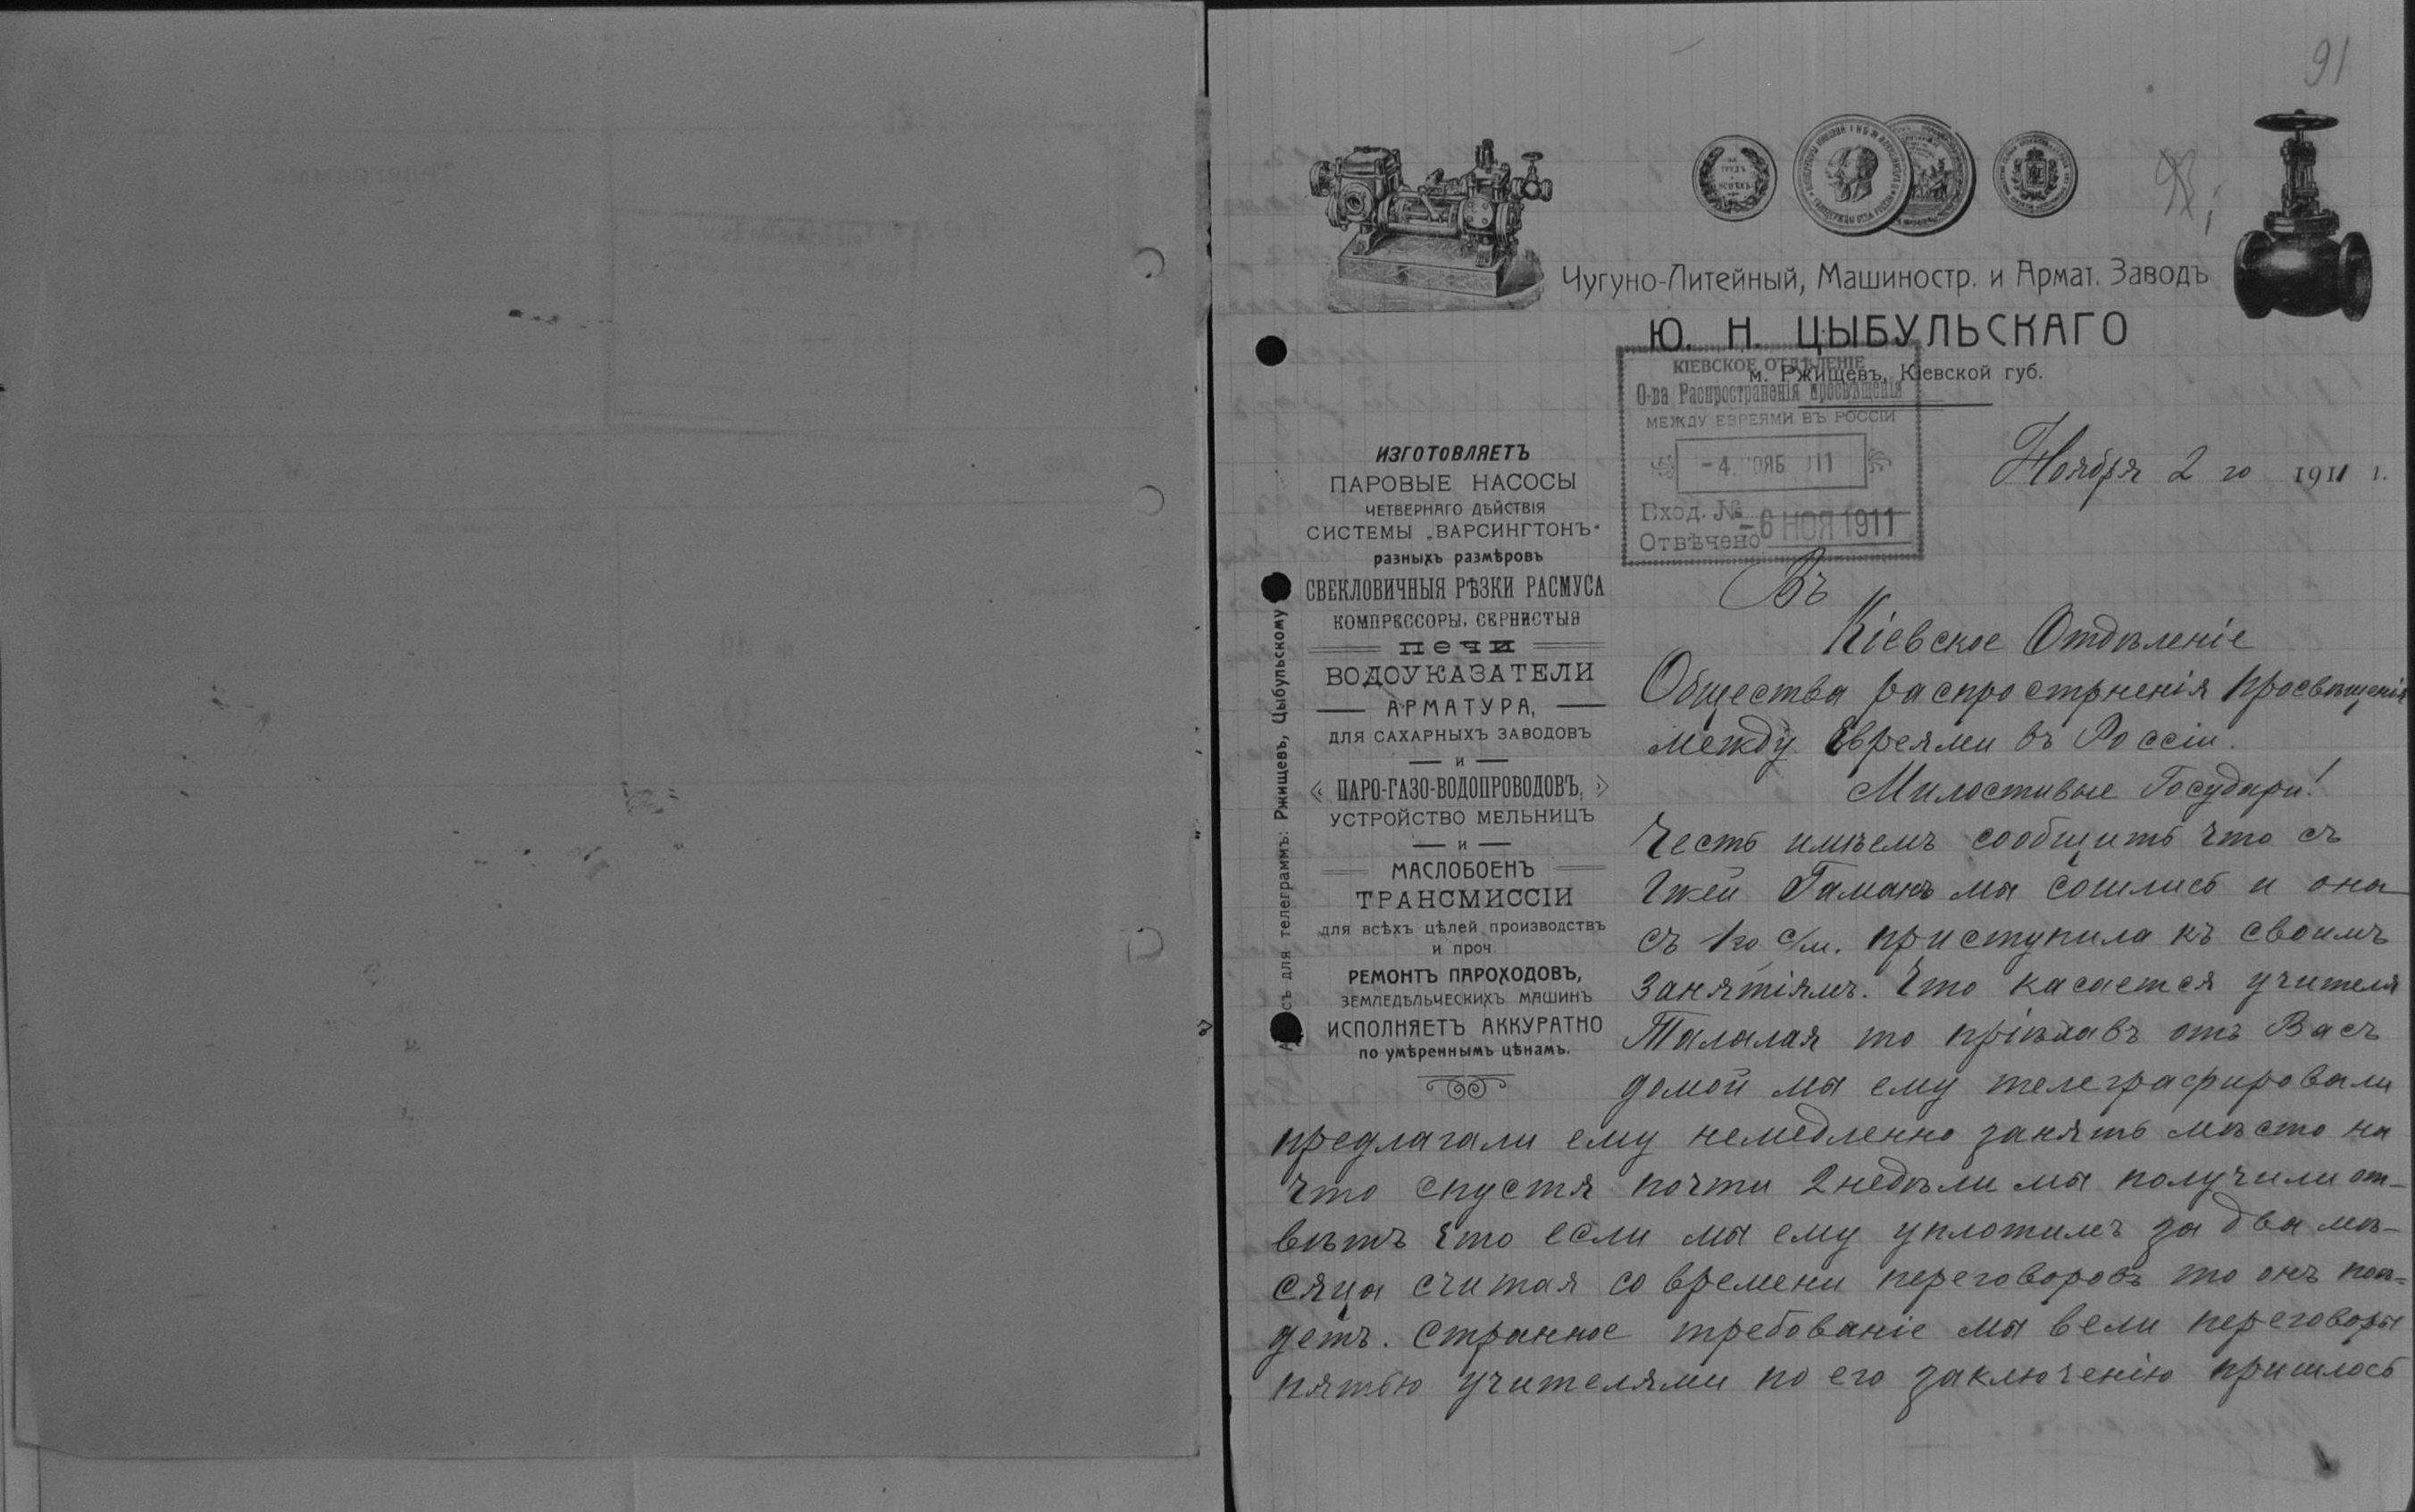 91
Чугуно-Литейный, Машиностр. и Армат. Заводъ
Ю. Н. ЦЫБУЛЬСКАГО
м. Ржищевъ, Кіевской губ.
КІЕВСКОЕ ОТДѢЛЕНІЕ
О-ва Распространенія просвѣщенія
МЕЖДУ ЕВРЕЯМИ ВЪ РОССІИ
-4. НОЯБ 911
Вход. №
-6 НОЯ 1911
Отвѣчено
Ноября 2 го 1911 г.
ИЗГОТОВЛЯЕТЪ
ПАРОВЫЕ НАСОСЫ
ЧЕТВЕРНАГО ДѢЙСТВІЯ
СИСТЕМЫ „ВАРСИНГТОНЪ"
разныхъ размѣровъ
СВЕКЛОВИЧНЫЯ РѢЗКИ РАСМУСА
КОМПРЕССОРЫ, СЕРНИСТЫЯ
ПЕЧИ
ВОДОУКАЗАТЕЛИ
АРМАТУРА,
ДЛЯ САХАРНЫХЪ ЗАВОДОВЪ
и
« ПАРО-ГАЗО-ВОДОПРОВОДОВЪ, »
УСТРОЙСТВО МЕЛЬНИЦЪ
и
МАСЛОБОЕНЪ
ТРАНСМИССІИ
для всѣхъ цѣлей производствъ
и проч.
РЕМОНТЪ ПАРОХОДОВЪ,
ЗЕМЛЕДѢЛЬЧЕСКИХЪ МАШИНЪ
ИСПОЛНЯЕТЪ АККУРАТНО
по умѣреннымъ цѣнамъ.
для телеграммъ: Ржищевъ, Цыбульскому
Въ
Кіевское Отдѣленіе
Общества распрострненія просвѣщенія
между Евреями въ Россіи.
Милостивые Государи!
Честь имѣемъ сообщить что съ
Гжей Гаманъ мы сошлись и она
съ 1го с/м. приступила къ своимъ
занятіямъ. Что касается учителя
Талалая то пріѣхавъ отъ Васъ
домой мы ему телеграфировали
предлагали ему немедленно занять мѣсто на
что спустя почти 2 недѣли мы получили от-
вѣтъ что если мы ему уплотимъ за два мѣ-
сяца считая со времени переговоровъ то онъ поѣ-
детъ. Странное требованіе мы вели переговоры
пятью учителями по его заключенію пришлось